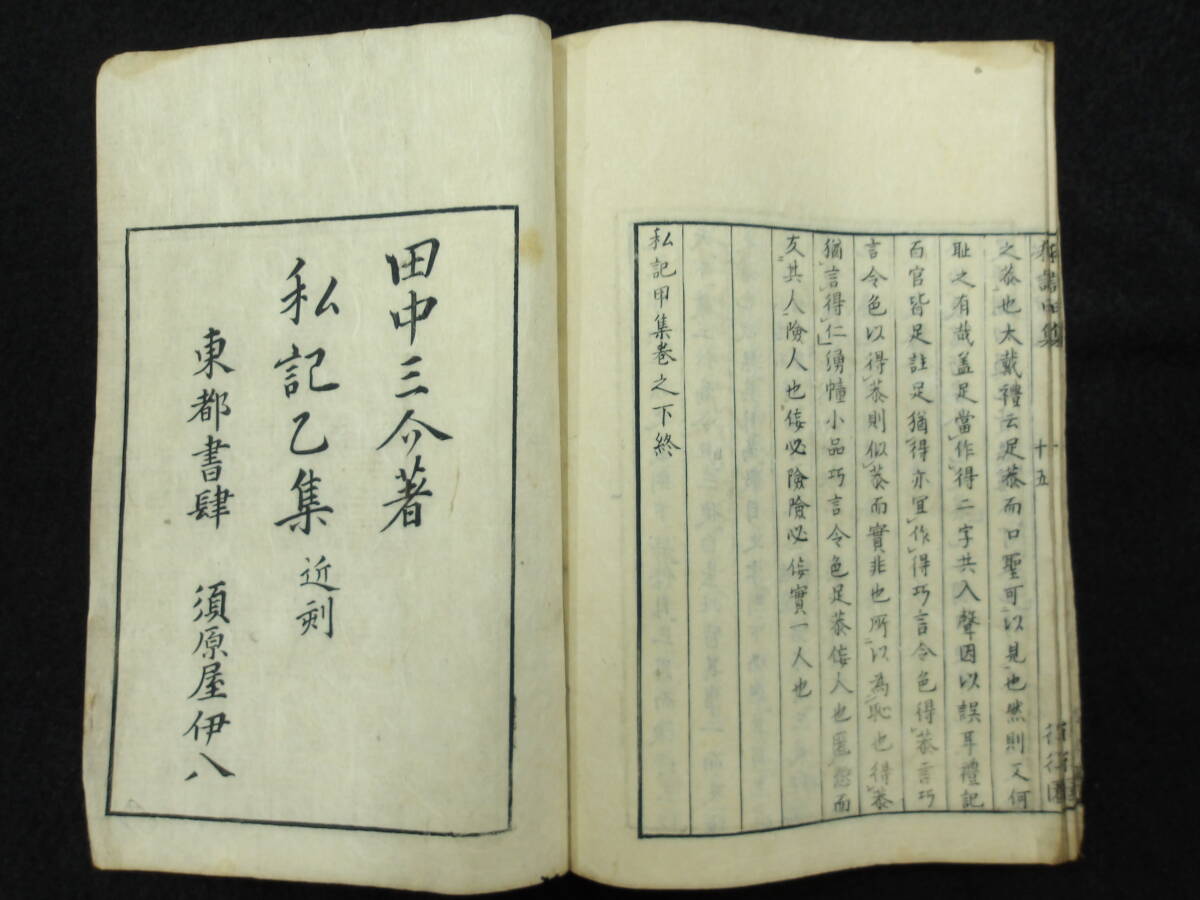 十五
之恭也太戴禮云足恭而口聖可以見也然則又何
耻之有哉盖足當作得二字共入聲因以誤耳禮記
百官皆足註足猶得亦宜作得巧言令色得恭言巧
言令色以得恭則似恭而實非也所以為恥也得恭
猶言得仁湧幢小品巧言令色足恭侫人也匿怨而
友其人險人也侫必險險必侫實一人也
私記甲集巻之下終
田中三介著
私記乙集 近刻
東都書肆 須原屋伊八